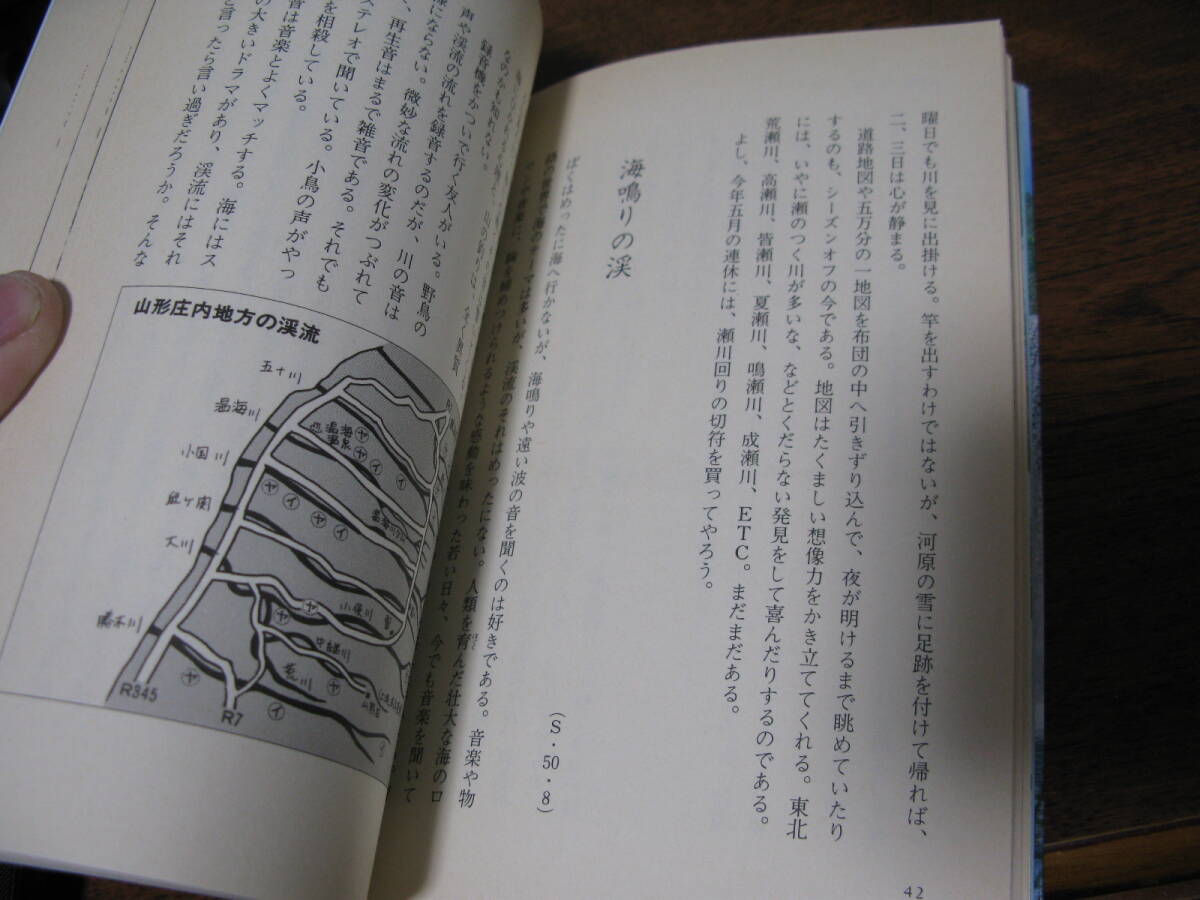 曜日でも川を見に出掛ける。竿を出すわけではないが、河原の雪に足跡を付けて帰れば、
二、三日は心が静まる。
道路地図や五万分の一地図を布団の中へ引きずり込んで、夜が明けるまで眺めていたり
するのも、シーズンオフの今である。地図はたくましい想像力をかき立ててくれる。東北
には、いやに瀬のつく川が多いな、などとくだらない発見をして喜んだりするのである。
荒瀬川、高瀬川、皆瀬川、夏瀬川、鳴瀬川、成瀬川、ETC。まだまだある。
よし、今年五月の連休には、瀬川回りの切符を買ってやろう。
(S・50・8)
海鳴りの渓
ぼくはめったに海へ行かないが、海鳴りや遠い波の音を聞くのは好きである。音楽や物
ては多いが、渓流のそれはめったにない。人類を育んだ壮大な海のロ
胸を締めつけられるような感動を味わった若い日々、今でも音楽を聞いて
録音機をかついで行く友人がいる。野鳥の
声や渓流の流れを録音するのだが、川の音は
様にならない。微妙な流れの変化がつぶれて
、再生音はまるで雑音である。それでも
ステレオで聞いている。小鳥の声がやっ
を相殺している。
音は音楽とよくマッチする。海にはス
の大きいドラマがあり、渓流にはそれ
と言ったら言い過ぎだろうか。そんな
山形庄内地方の渓流
五十川
温海川
小国川
鼠ケ関
大川
勝木川
R345
R7
小俣川
中継川
荒川
42